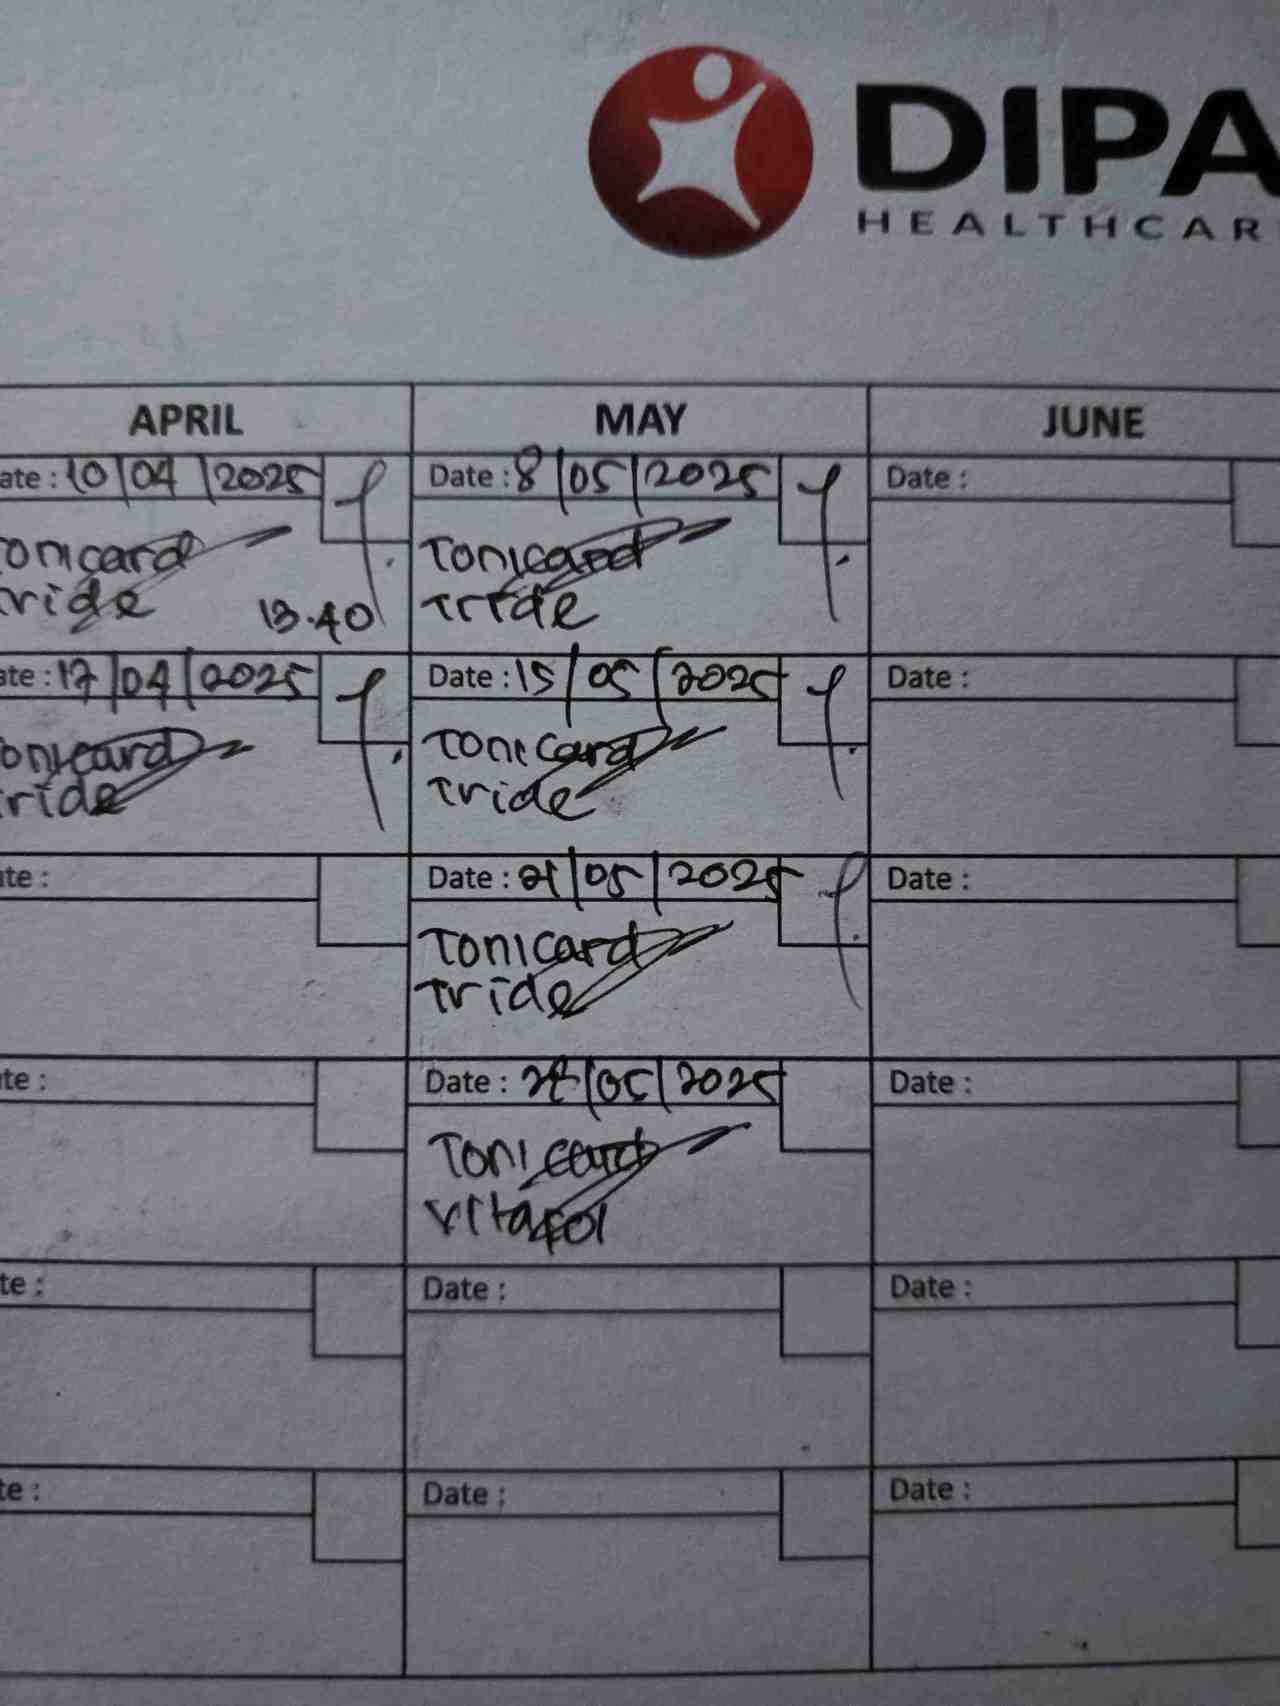 DIPA
HEALTHCAR
APRIL
ate : 10/04/2025
onicard
ride
13.40
ate : 17/04/2025
onicard
ride
ate :
te :
te :
te :
MAY
Date : 8/05/2025
Tonicard
Tride
Date : 15/05/2025
Tonicard
Tride
Date : 21/05/2025
Tonicard
Tride
Date : /05/2025
Tonicard
Vitafol
Date :
Date :
JUNE
Date :
Date :
Date :
Date :
Date :
Date :